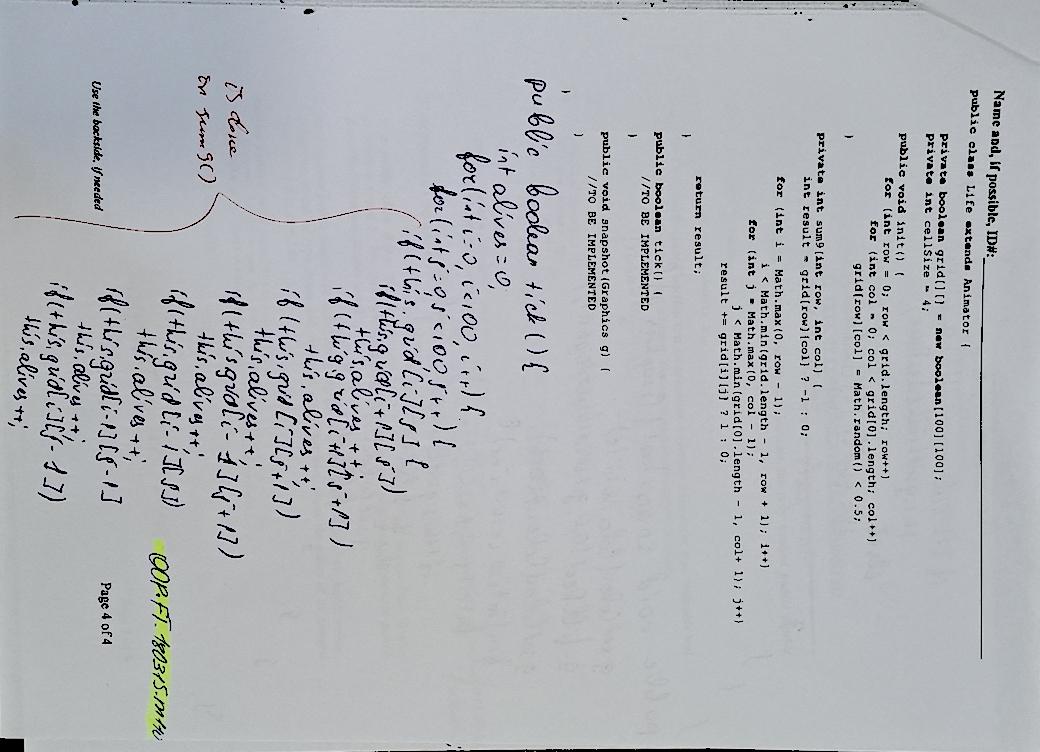 Name and, if possible, ID#:
public class Life extends Animator {
private boolean grid[][] = new boolean[100][100];
private int cellSize = 4;
public void init() {
for (int row = 0; row < grid.length; row++)
for (int col = 0; col < grid[0].length; col++)
grid[row][col] = Math.random() < 0.5;
}
private int sum9(int row, int col) {
int result = grid[row][col] ? -1 : 0;
for (int i = Math.max(0, row - 1);
i < Math.min(grid.length - 1, row + 1); i++)
for (int j = Math.max(0, col - 1);
j < Math.min(grid[0].length - 1, col+ 1); j++)
result += grid[i][j] ? 1 : 0;
return result;
}
public boolean tick() {
//TO BE IMPLEMENTED
}
public void snapshot(Graphics g) {
//TO BE IMPLEMENTED
}
}
public boolean tick() {
int alives = 0
for(int i=0, i<100, i++) {
for(int j=0, j<100 j++) {
if(this.grid[i][j] {
if(this.grid[i-1][j-1])
this.alives ++;
if(this.grid[i+1][j+1])
this.alives ++;
if(this.grid[i][j+1])
this.alives++;
if(this.grid[i-1][j+1])
this.alives++;
if(this.grid[i-1][j])
this.alives++;
if(this.grid[i-1][j-1]
this.alives ++;
if(this.grid[i][j-1])
this.alives++;
is done
in sum9()
Use the backside, if needed
Page 4 of 4